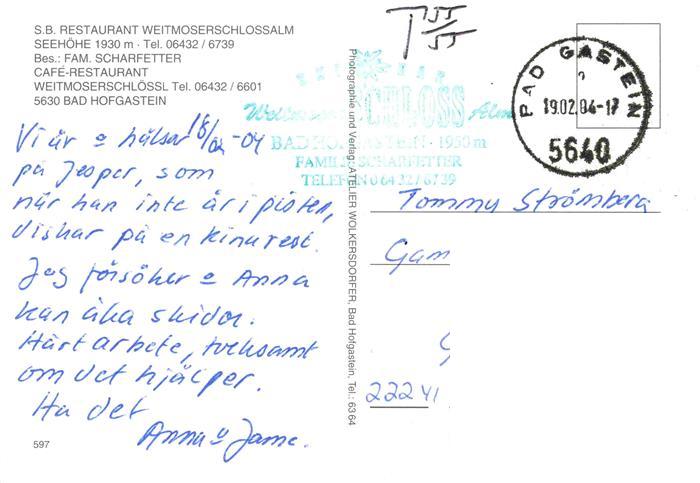 S.B. RESTAURANT WEITMOSERSCHLOSSALM
SEEHÖHE 1930 m · Tel. 06432 / 6739
Bes.: FAM. SCHARFETTER
CAFÉ-RESTAURANT
WEITMOSERSCHLÖSSL Tel. 06432 / 6601
5630 BAD HOFGASTEIN
Vi är o hälsar 18/02-04
på Jesper, som
när han inte är i pisten,
diskar på en kinarest.
Jag försöker o Anna
kan åka skidor.
Hårt arbete, tveksamt
om det hjälper.
Ha det
Anna o Janne.
597
Photographie und Verlag: ATELIER WOLKERSDORFER, Bad Hofgastein, Tel.: 63 64
T 55/55
SCHLOSS Alm
BAD HOFGASTEIN · 1950 m
FAMILIE SCHARFETTER
TELEFON 0 64 32 / 67 39
BAD GASTEIN
19.02.04-17
5640
Tommy Strömberg
Gam
222 41